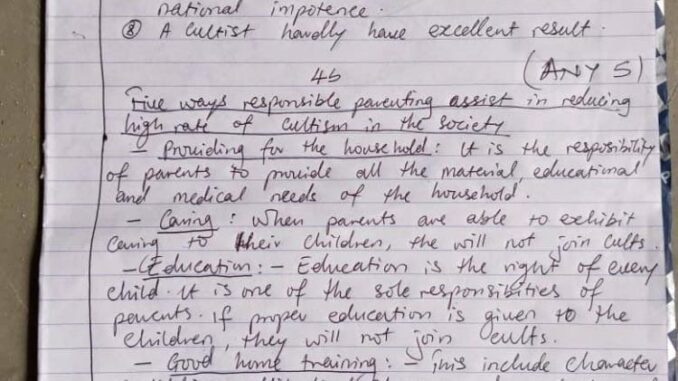 national impotence.
⑧ A cultist hardly have excellent result.
4b (ANY 5)
Five ways responsible parenting assist in reducing
high rate of cultism in the society
- Providing for the household: It is the resposibility
of parents to provide all the material, educational
and medical needs of the household.
- Caring: When parents are able to exhibit
caring to their children, the will not join cults.
- Education: - Education is the right of every
child. It is one of the sole responsibities of
parents. If proper education is given to the
children, they will not join cults.
- Good home training: - This include character